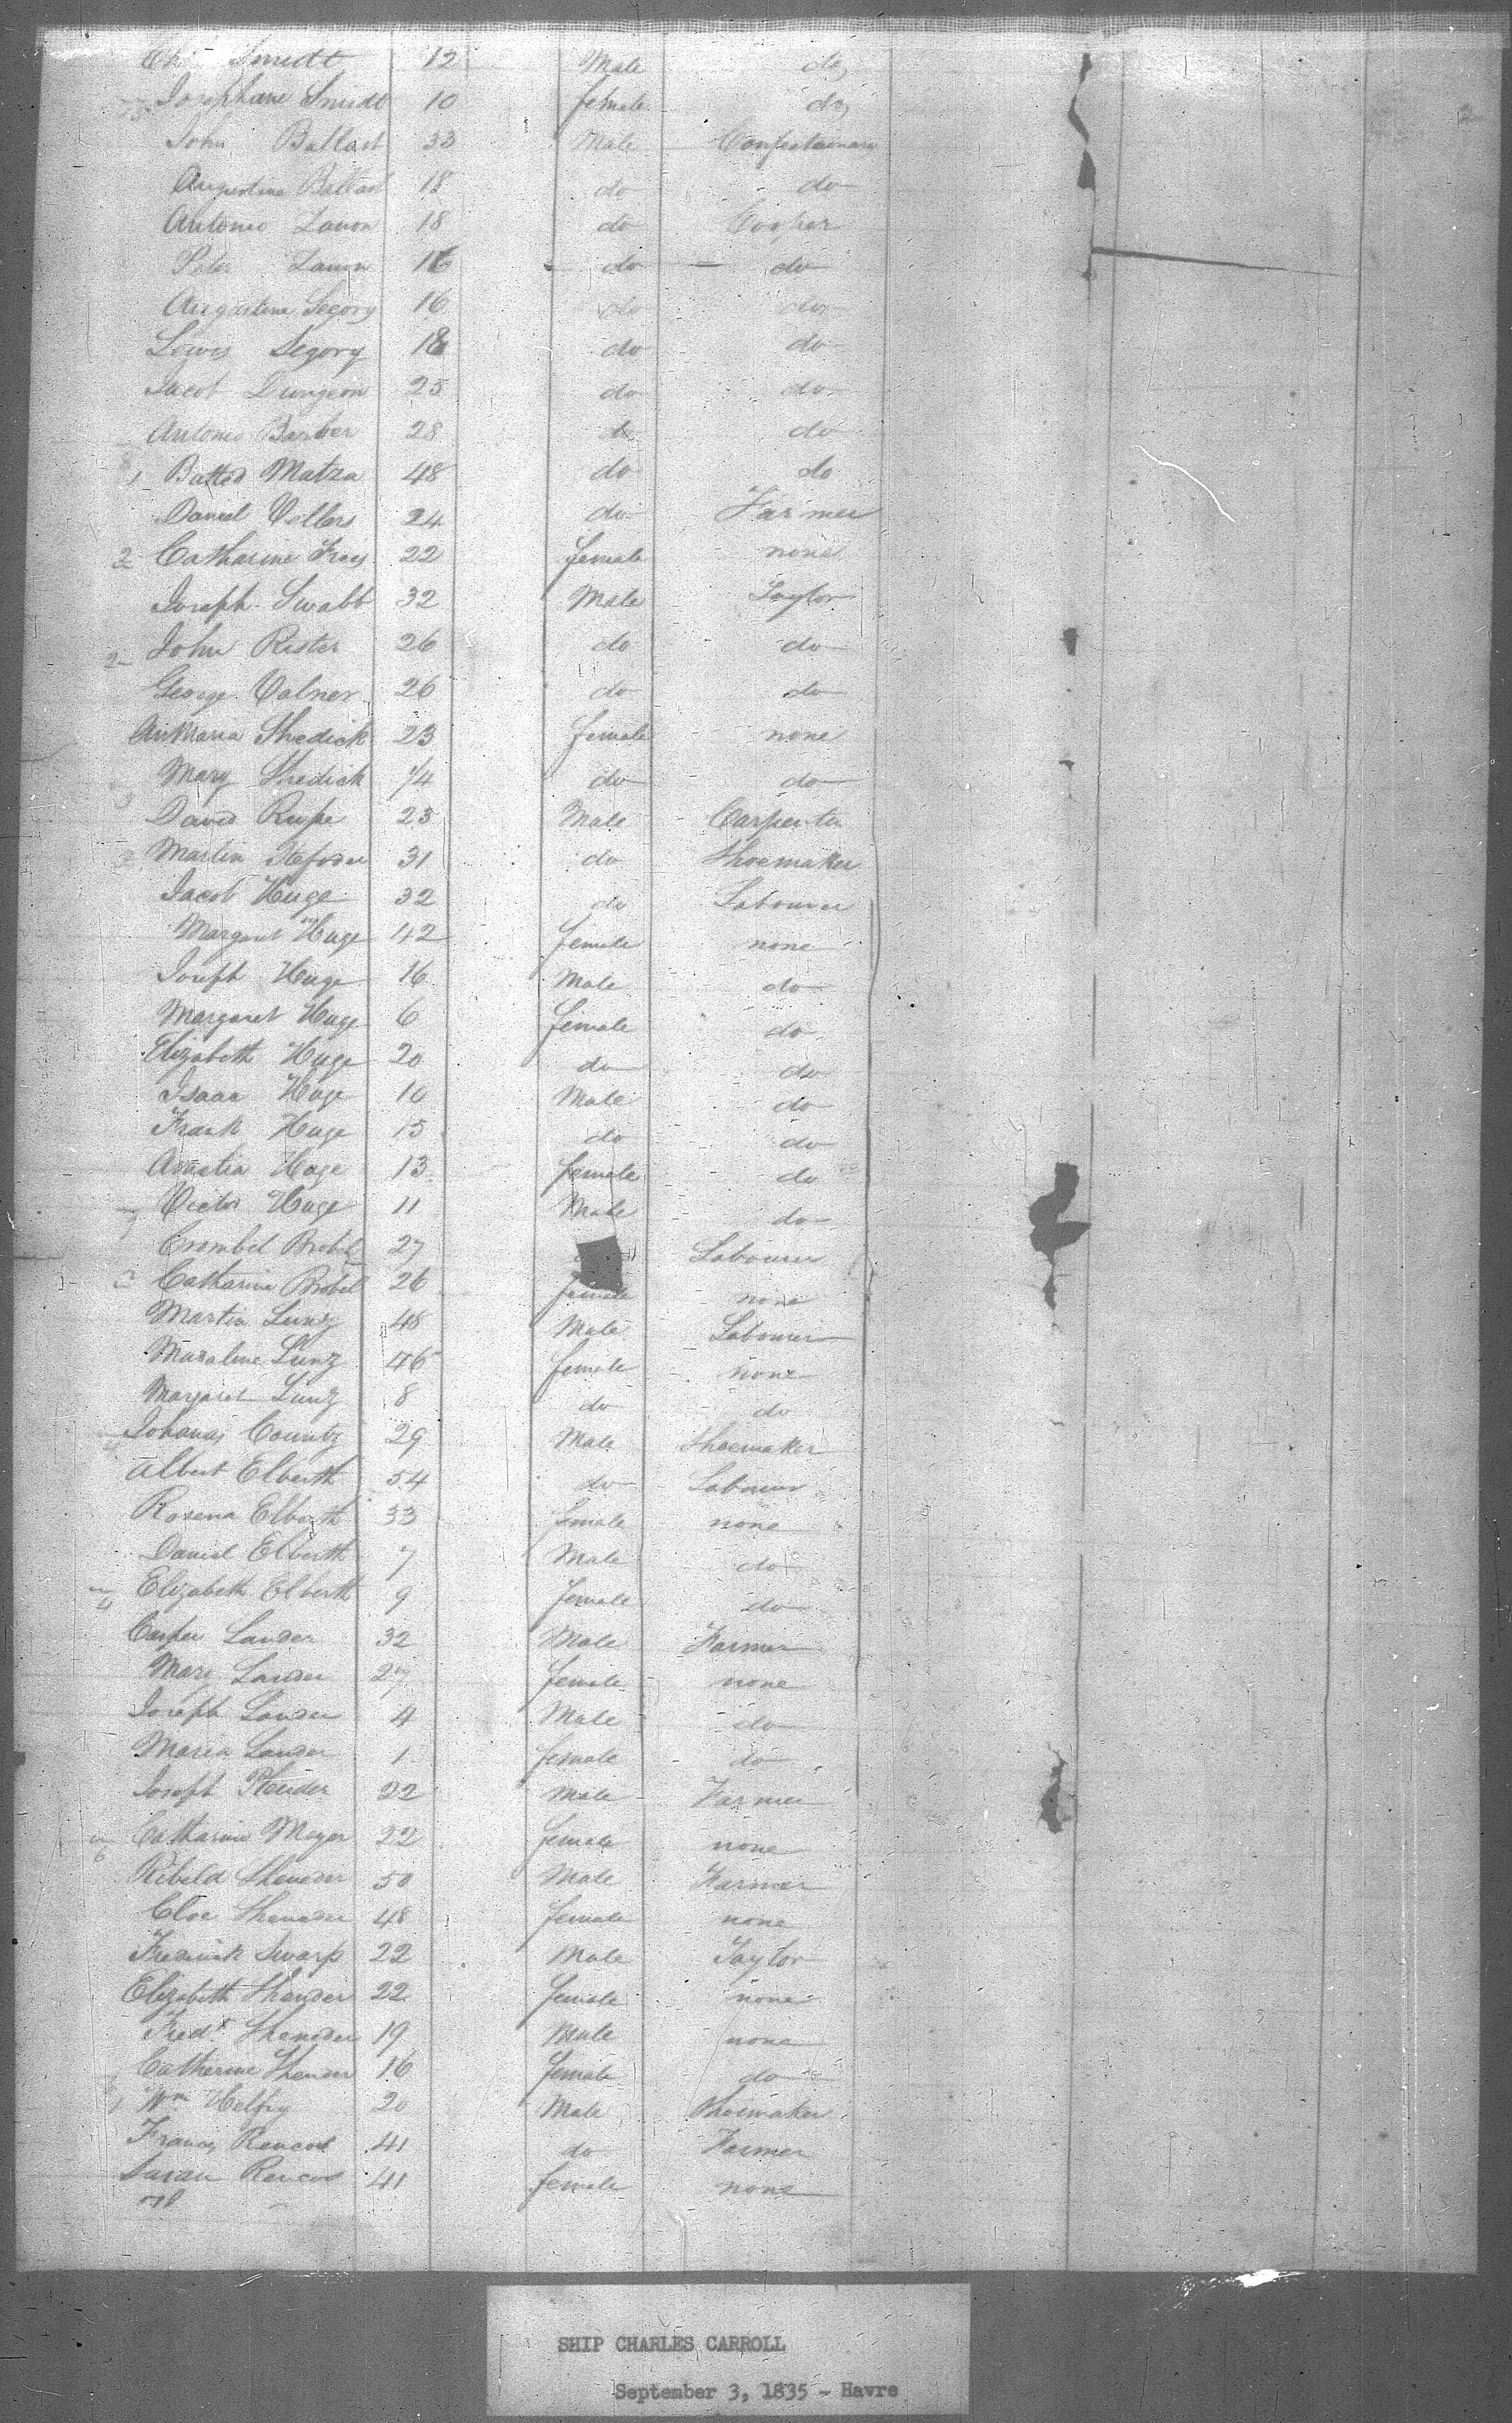 Smidt 12 Male do
Josephane Smidt 10 female do
John Ballast 33 Male Confectionary
Augustine Ballast 18 do do
Antonio Lauon 18 do Cooper
Peter Lauon 16 do do
Augustine Segory 16 do do
Lewis Segory 18 do do
Jacob Dungeon 25 do do
Antonio Barber 28 do do
1 Batted Matza 48 do do
Daniel Vellers 24 do Farmer
2 Catharine Frey 22 female none
Joseph Swabb 32 Male Taylor
2 John Rister 26 do do
George Valner 26 do do
AnMaria Shedick 23 female none
Mary Shedick 1/4 do do
David Rupe 25 Male Carpenter
Martin 31 do Shoemaker
Jacob Huge 32 do Labourer
Margaret Huge 42 female none
Joseph Huge 16 Male do
Margaret Huge 6 female do
Elizabeth Huge 20 do do
Isaac Huge 10 Male do
Frank Huge 15 do do
Huge 13 female do
7 Victor Huge 11 Male do
Crombel Brobel 27 Labourer
2 Catharine Brobel 26 female none
Martin Lunz 48 Male Labourer
Madaline Lunz 46 female none
Margaret Lunz 8 do do
Johanas Countz 29 Male Shoemaker
Albert Elberth 54 do Labourer
Rosena Elberth 33 female none
Daniel Elberth 7 Male do
Elizabeth Elberth 9 female do
Casper Lander 32 Male Farmer
Mary Lander 27 female none
Joseph Lander 4 Male do
Maria Lander 1 female do
Joseph 22 Male Farmer
Catharine Meyer 22 female none
Ribeld Sheneder 50 Male Farmer
Cloe Sheneder 48 female none
Frederick Swarp 22 Male Taylor
Elizabeth Sheneder 22 female none
Fredk Sheneder 19 Male none
Catherine Sheneder 16 female do
Wm Helfry 20 Male Shoemaker
Francis Rencod 41 do Farmer
Susan Rencod 41 female none
SHIP CHARLES CARROLL
September 3, 1835 - Havre